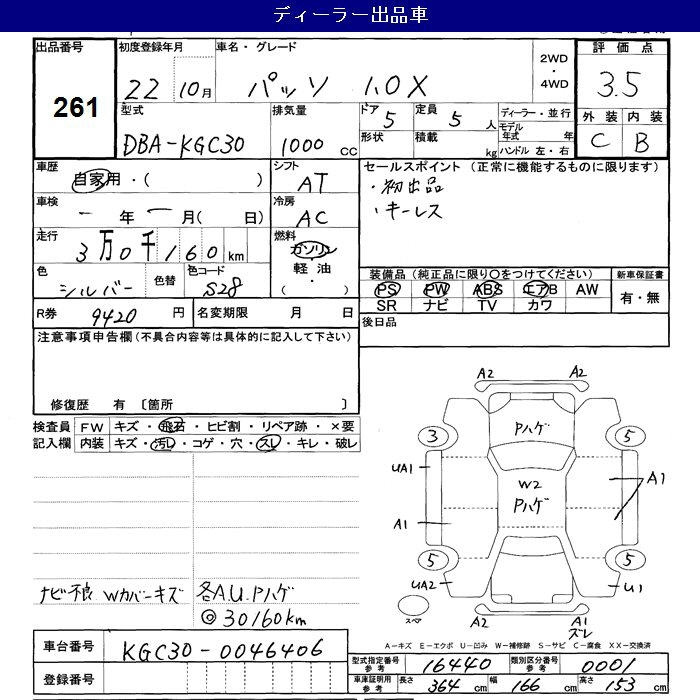 ディーラー出品車
出品番号 261
初度登録年月 22 10月
車名・グレード パッソ 1.0X
2WD・4WD
評価点 3.5
外装 C 内装 B
型式 DBA-KGC30
排気量 1000 CC
ドア 5
形状
定員 5 人
積載 kg
ディーラー・並行
モデル年式 年
ハンドル 左・右
車歴 自家用・( )
シフト AT
セールスポイント (正常に機能するものに限ります)
・初出品
・キーレス
車検 ー年ー月( 日)
冷房 AC
走行 3万0千160km
燃料 ガソリン・軽油・( )
色 シルバー
色替
色コード S28
装備品(純正品に限り○をつけてください)
新車保証書 有・無
PS PW ABS エアB AW
SR ナビ TV カワ
R券 9420 円
名変期限 月 日
後日品
注意事項申告欄(不具合内容等は具体的に記入して下さい)
修復歴 有 〔箇所 〕
検査員記入欄
FW キズ・飛石・ヒビ割・リペア跡・×要
内装 キズ・汚レ・コゲ・穴・スレ・キレ・破レ
ナビ不良 Wカバーキズ
各A.U.Pハゲ
◎30160km
A2 A2
Pハゲ
3 5
UA1
W2
Pハゲ
A1
A1
5 5
UA2 U1
スペア
A2 A1
ズレ
A-キズ E-エクボ U-凹み W-補修跡 S-サビ C-腐食 XX-交換済
車台番号 KGC30-0046406
登録番号
型式指定番号 参考 16440
類別区分番号 参考 0001
車庫証明用 参考 長さ 364 cm 幅 166 cm 高さ 153 cm